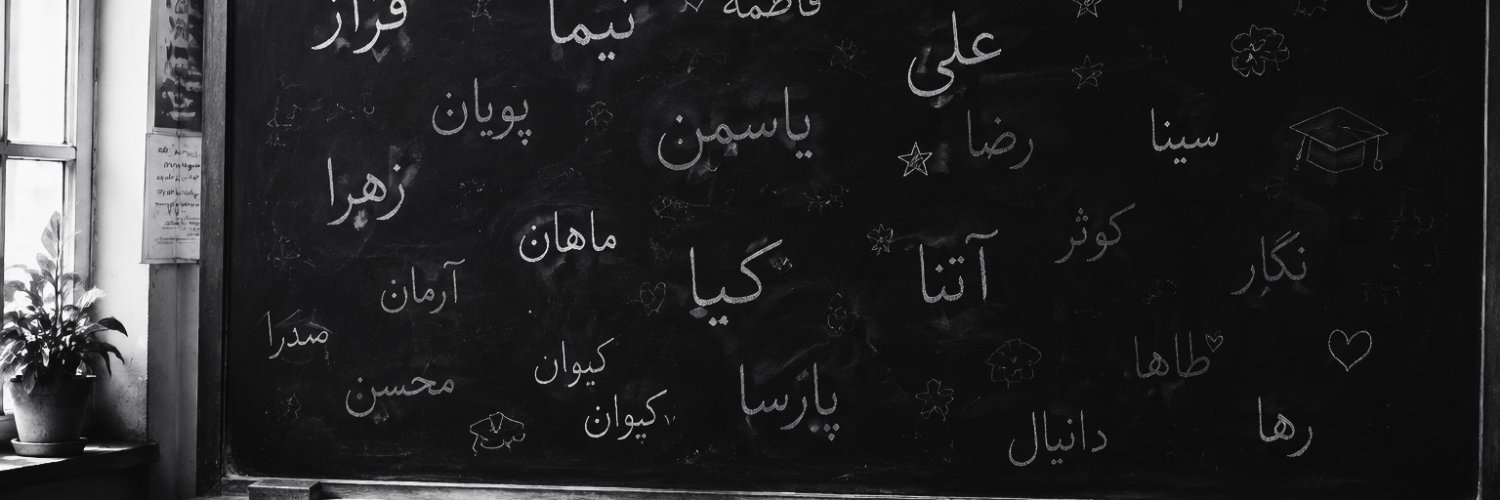 علی نیما فراز فاطمه
سینا رضا یاسمن پویان
زهرا
نگار کوثر آتنا کیا ماهان
آرمان
طاها کیوان صدرا
رها پارسا محسن
دانیال کیوان